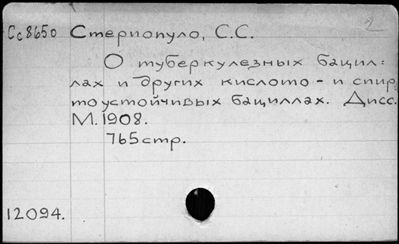 Сс8650 Стериопуло, С.С.
О туберкулезных бацил:
лах и других кислото - и спир
тоустойчивых бациллах. Дисс.
М. 1908.
765стр.
12094.